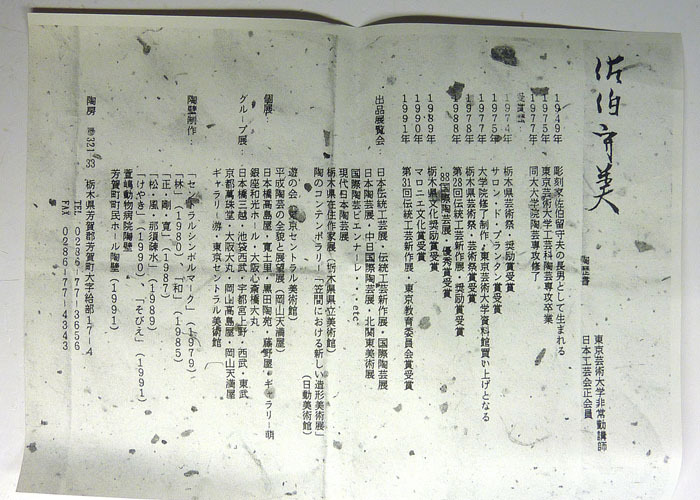 佐伯守美
陶歴書
東京芸術大学非常勤講師
日本工芸会正会員
1949年 彫刻家佐伯留守夫の長男として生まれる
1975年 東京芸術大学工芸科陶芸専攻卒業
1977年 同大大学院陶芸専攻修了
受賞歴:
1974年 栃木県芸術祭・奨励賞受賞
1975年 サロン・ド・プランタン賞受賞
1977年 大学院修了制作・東京芸術大学資料館買い上げとなる
1978年 栃木県芸術祭・芸術祭賞受賞
1988年 第28回伝統工芸新作展・奨励賞受賞
'88国際陶芸展・優秀賞受賞
1989年 栃木県文化奨励賞受賞
1990年 マロニエ文化賞受賞
1991年 第31回伝統工芸新作展・東京教育委員会賞受賞
出品展覧会: 日本伝統工芸展・伝統工芸新作展・国際陶芸展
日本陶芸展・中日国際陶芸展・北関東美術展
国際陶芸ビエンナーレ・・・etc
現代日本陶芸展
栃木県在住作家展(栃木県立美術館)
陶のコンテンポラリー「笠間における新しい造形美術展」
(日動美術館)
遊の会(東京セントラル美術館)
平成陶芸の全貌と展望展(岡山天満屋)
個展: 日本橋高島屋・寛土里・黒田陶苑・藤野屋・ギャラリー萌
銀座和光ホール・大阪心斎橋大丸
グループ展: 日本橋三越・池袋西武・宇都宮上野・西武・東武
京都萬珠堂・大阪大丸・岡山高島屋・岡山天満屋
ギャラリー游・東京セントラル美術館
陶壁制作: 「セントラルシンボルマーク」(1979)
「林」(1980)、「和」(1985)
「正・剛・寛」(1987)
「松・風・那須疎水」(1989)
「けやき」(1990)「そびえ」(1991)
萱嶋動物病院陶壁
芳賀町町民ホール陶壁(1991)
陶房 〒321-33 栃木県芳賀郡芳賀町大字給部17-4
TEL 0286-77-3656
FAX 0286-77-4343